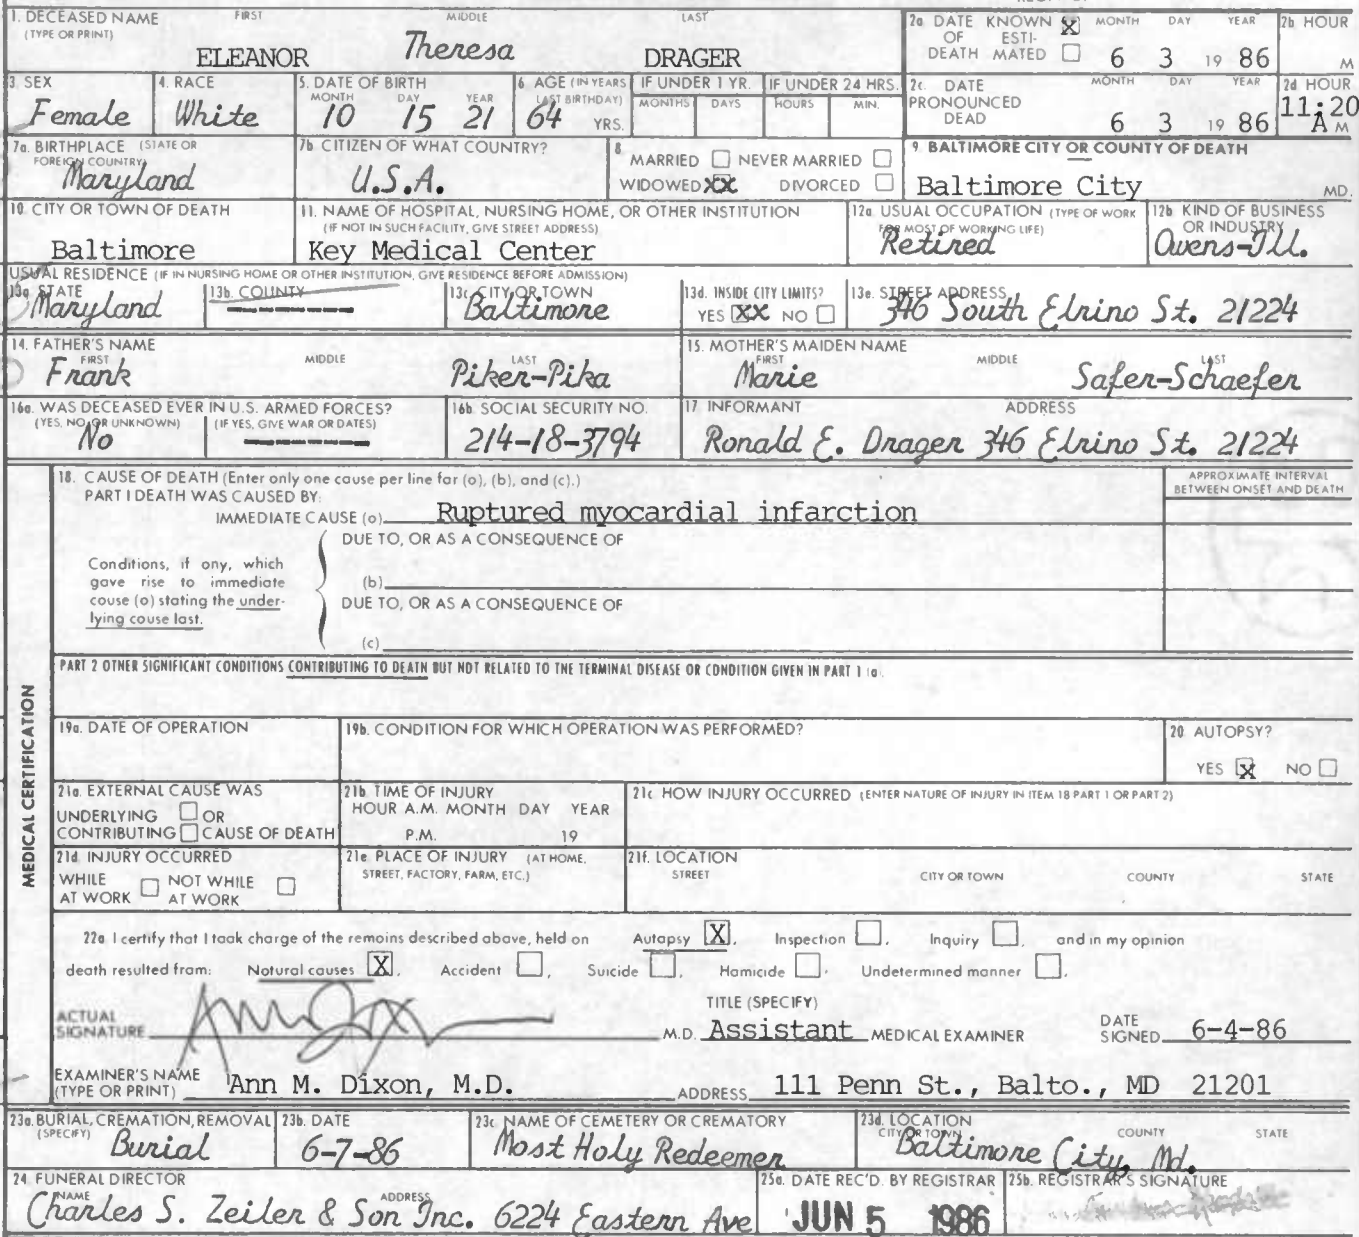 1. DECEASED NAME FIRST MIDDLE LAST
(TYPE OR PRINT)
ELEANOR Theresa DRAGER
2a DATE KNOWN X MONTH DAY YEAR
OF ESTI-
DEATH MATED 6 3 19 86
2b HOUR
M
3 SEX
Female
4. RACE
White
5. DATE OF BIRTH
MONTH DAY YEAR
10 15 21
6 AGE (IN YEARS
LAST BIRTHDAY)
64 YRS.
IF UNDER 1 YR. IF UNDER 24 HRS.
MONTHS DAYS HOURS MIN.
2c. DATE MONTH DAY YEAR
PRONOUNCED
DEAD 6 3 19 86
2d HOUR
11:20
A M
7a. BIRTHPLACE (STATE OR
FOREIGN COUNTRY)
Maryland
7b CITIZEN OF WHAT COUNTRY?
U.S.A.
8
MARRIED NEVER MARRIED
WIDOWED XX DIVORCED
9. BALTIMORE CITY OR COUNTY OF DEATH
Baltimore City MD.
10 CITY OR TOWN OF DEATH
Baltimore
11. NAME OF HOSPITAL, NURSING HOME, OR OTHER INSTITUTION
(IF NOT IN SUCH FACILITY, GIVE STREET ADDRESS)
Key Medical Center
12a USUAL OCCUPATION (TYPE OF WORK
FOR MOST OF WORKING LIFE)
Retired
12b KIND OF BUSINESS
OR INDUSTRY
Owens-Ill.
USUAL RESIDENCE (IF IN NURSING HOME OR OTHER INSTITUTION, GIVE RESIDENCE BEFORE ADMISSION)
13a STATE
Maryland
13b. COUNTY
-------
13c CITY OR TOWN
Baltimore
13d. INSIDE CITY LIMITS?
YES XX NO
13e. STREET ADDRESS
346 South Elrino St. 21224
14. FATHER'S NAME
FIRST MIDDLE LAST
Frank Piker-Pika
15. MOTHER'S MAIDEN NAME
FIRST MIDDLE LAST
Marie Safer-Schaefer
16a. WAS DECEASED EVER IN U.S. ARMED FORCES?
(YES, NO, OR UNKNOWN) (IF YES, GIVE WAR OR DATES)
No -------
16b. SOCIAL SECURITY NO.
214-18-3794
17 INFORMANT ADDRESS
Ronald E. Drager 346 Elrino St. 21224
MEDICAL CERTIFICATION
18. CAUSE OF DEATH (Enter only one cause per line for (a), (b), and (c).)
PART I DEATH WAS CAUSED BY:
IMMEDIATE CAUSE (a) Ruptured myocardial infarction
APPROXIMATE INTERVAL
BETWEEN ONSET AND DEATH
DUE TO, OR AS A CONSEQUENCE OF
Conditions, if any, which
gave rise to immediate
cause (a) stating the under-
lying cause last.
(b)
DUE TO, OR AS A CONSEQUENCE OF
(c)
PART 2 OTHER SIGNIFICANT CONDITIONS CONTRIBUTING TO DEATH BUT NOT RELATED TO THE TERMINAL DISEASE OR CONDITION GIVEN IN PART 1 (a).
19a. DATE OF OPERATION
19b. CONDITION FOR WHICH OPERATION WAS PERFORMED?
20 AUTOPSY?
YES X NO
21a. EXTERNAL CAUSE WAS
UNDERLYING OR
CONTRIBUTING CAUSE OF DEATH
21b TIME OF INJURY
HOUR A.M. MONTH DAY YEAR
P.M. 19
21c HOW INJURY OCCURRED (ENTER NATURE OF INJURY IN ITEM 18 PART 1 OR PART 2)
21d INJURY OCCURRED
WHILE
AT WORK
NOT WHILE
AT WORK
21e PLACE OF INJURY (AT HOME,
STREET, FACTORY, FARM, ETC.)
21f. LOCATION
STREET CITY OR TOWN COUNTY STATE
22a I certify that I took charge of the remains described above, held on Autopsy X, Inspection , Inquiry , and in my opinion
death resulted from: Natural causes X, Accident , Suicide , Homicide , Undetermined manner .
ACTUAL
SIGNATURE
M.D.
TITLE (SPECIFY)
Assistant MEDICAL EXAMINER
DATE
SIGNED 6-4-86
EXAMINER'S NAME
(TYPE OR PRINT) Ann M. Dixon, M.D.
ADDRESS 111 Penn St., Balto., MD 21201
23a. BURIAL, CREMATION, REMOVAL
(SPECIFY)
Burial
23b. DATE
6-7-86
23c NAME OF CEMETERY OR CREMATORY
Most Holy Redeemer
23d. LOCATION
CITY OR TOWN COUNTY STATE
Baltimore City, Md.
24 FUNERAL DIRECTOR
NAME ADDRESS
Charles S. Zeiler & Son Inc. 6224 Eastern Ave
25a. DATE REC'D. BY REGISTRAR
JUN 5 1986
25b. REGISTRAR'S SIGNATURE